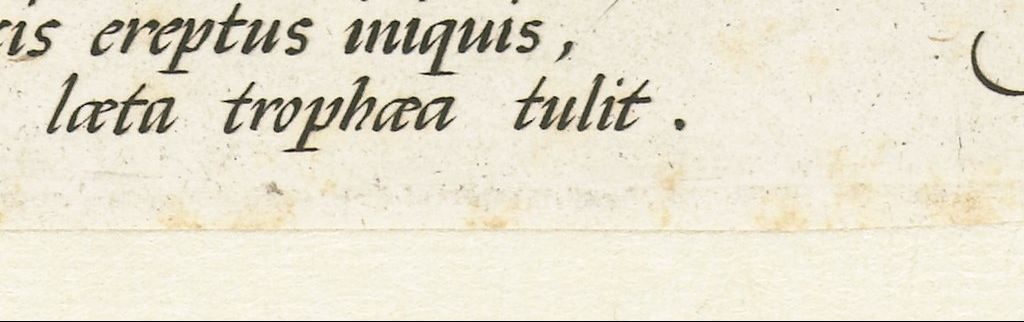 ereptus iniquis,
læta trophæa tulit.